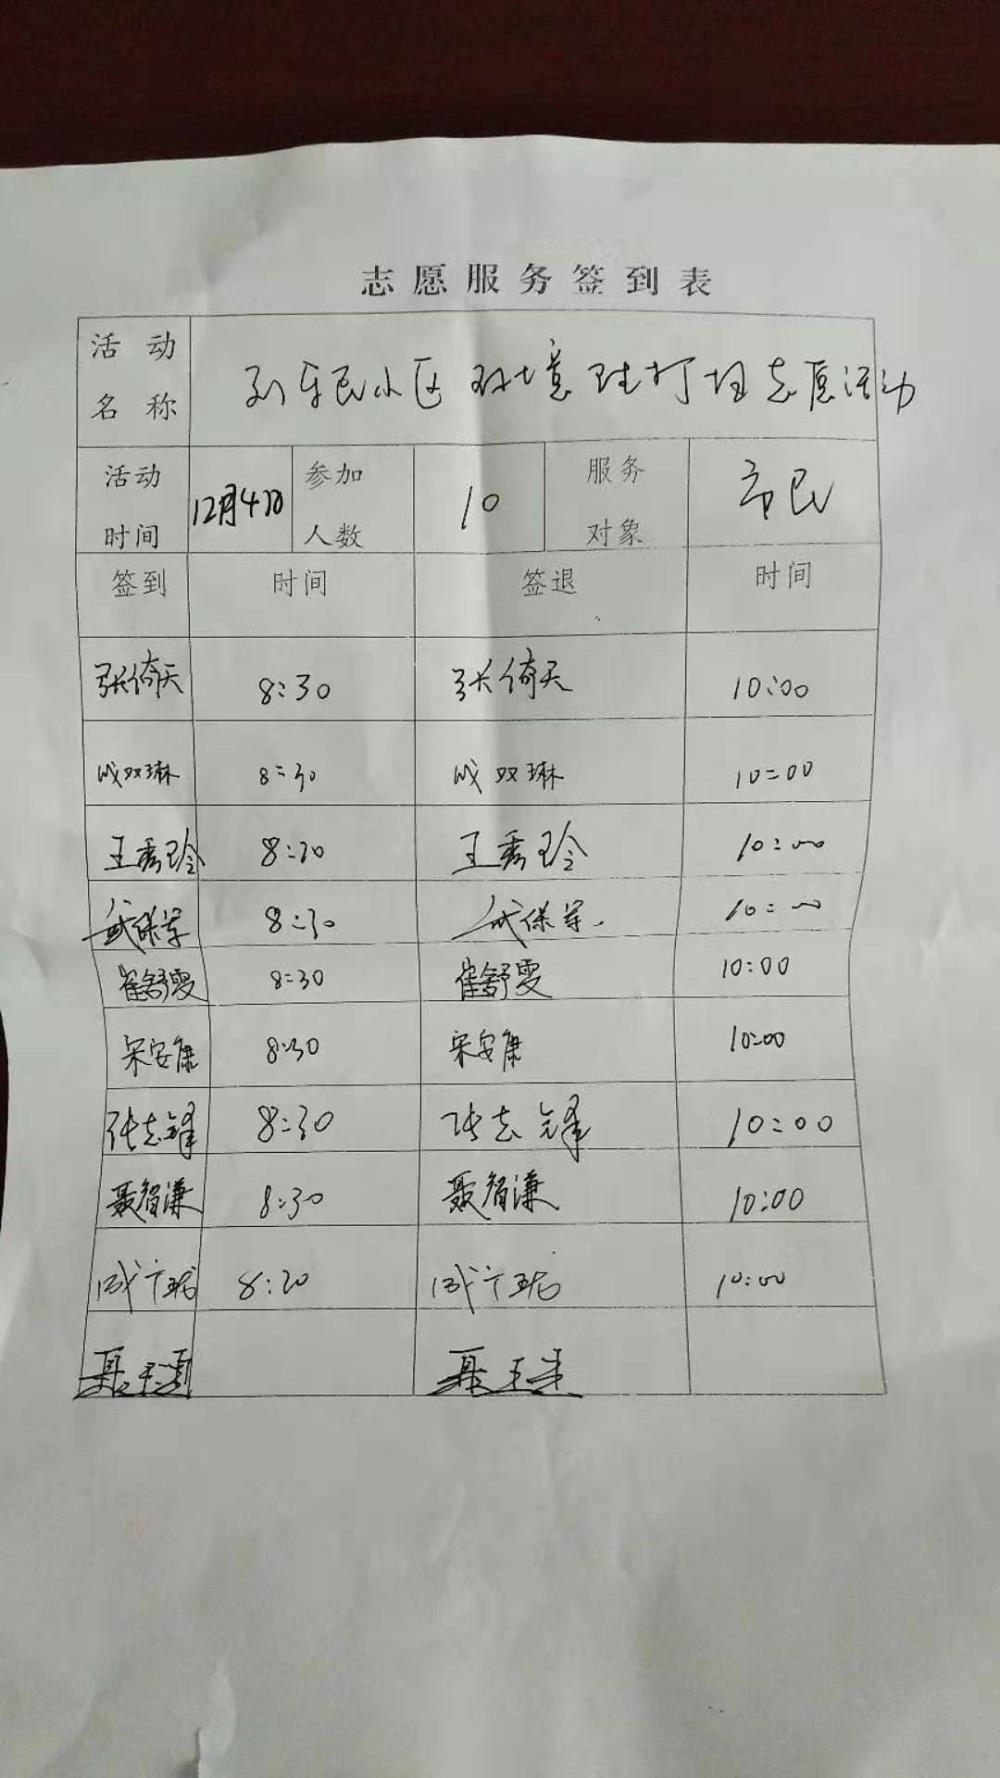 志愿服务签到表
活动名称 到乐民小区环境 志愿活动
活动时间 12月4日 参加人数 10 服务对象 市民
签到 时间 签退 时间
张倚天 8:30 张倚天 10:00
双琳 8:30 双琳 10:00
王秀玲 8:30 王秀玲 10:00
武保军 8:30 武保军 10:00
崔舒雯 8:30 崔舒雯 10:00
宋安康 8:30 宋安康 10:00
张志锋 8:30 张志锋 10:00
聂智谦 8:30 聂智谦 10:00
8:20 10:00
聂 聂